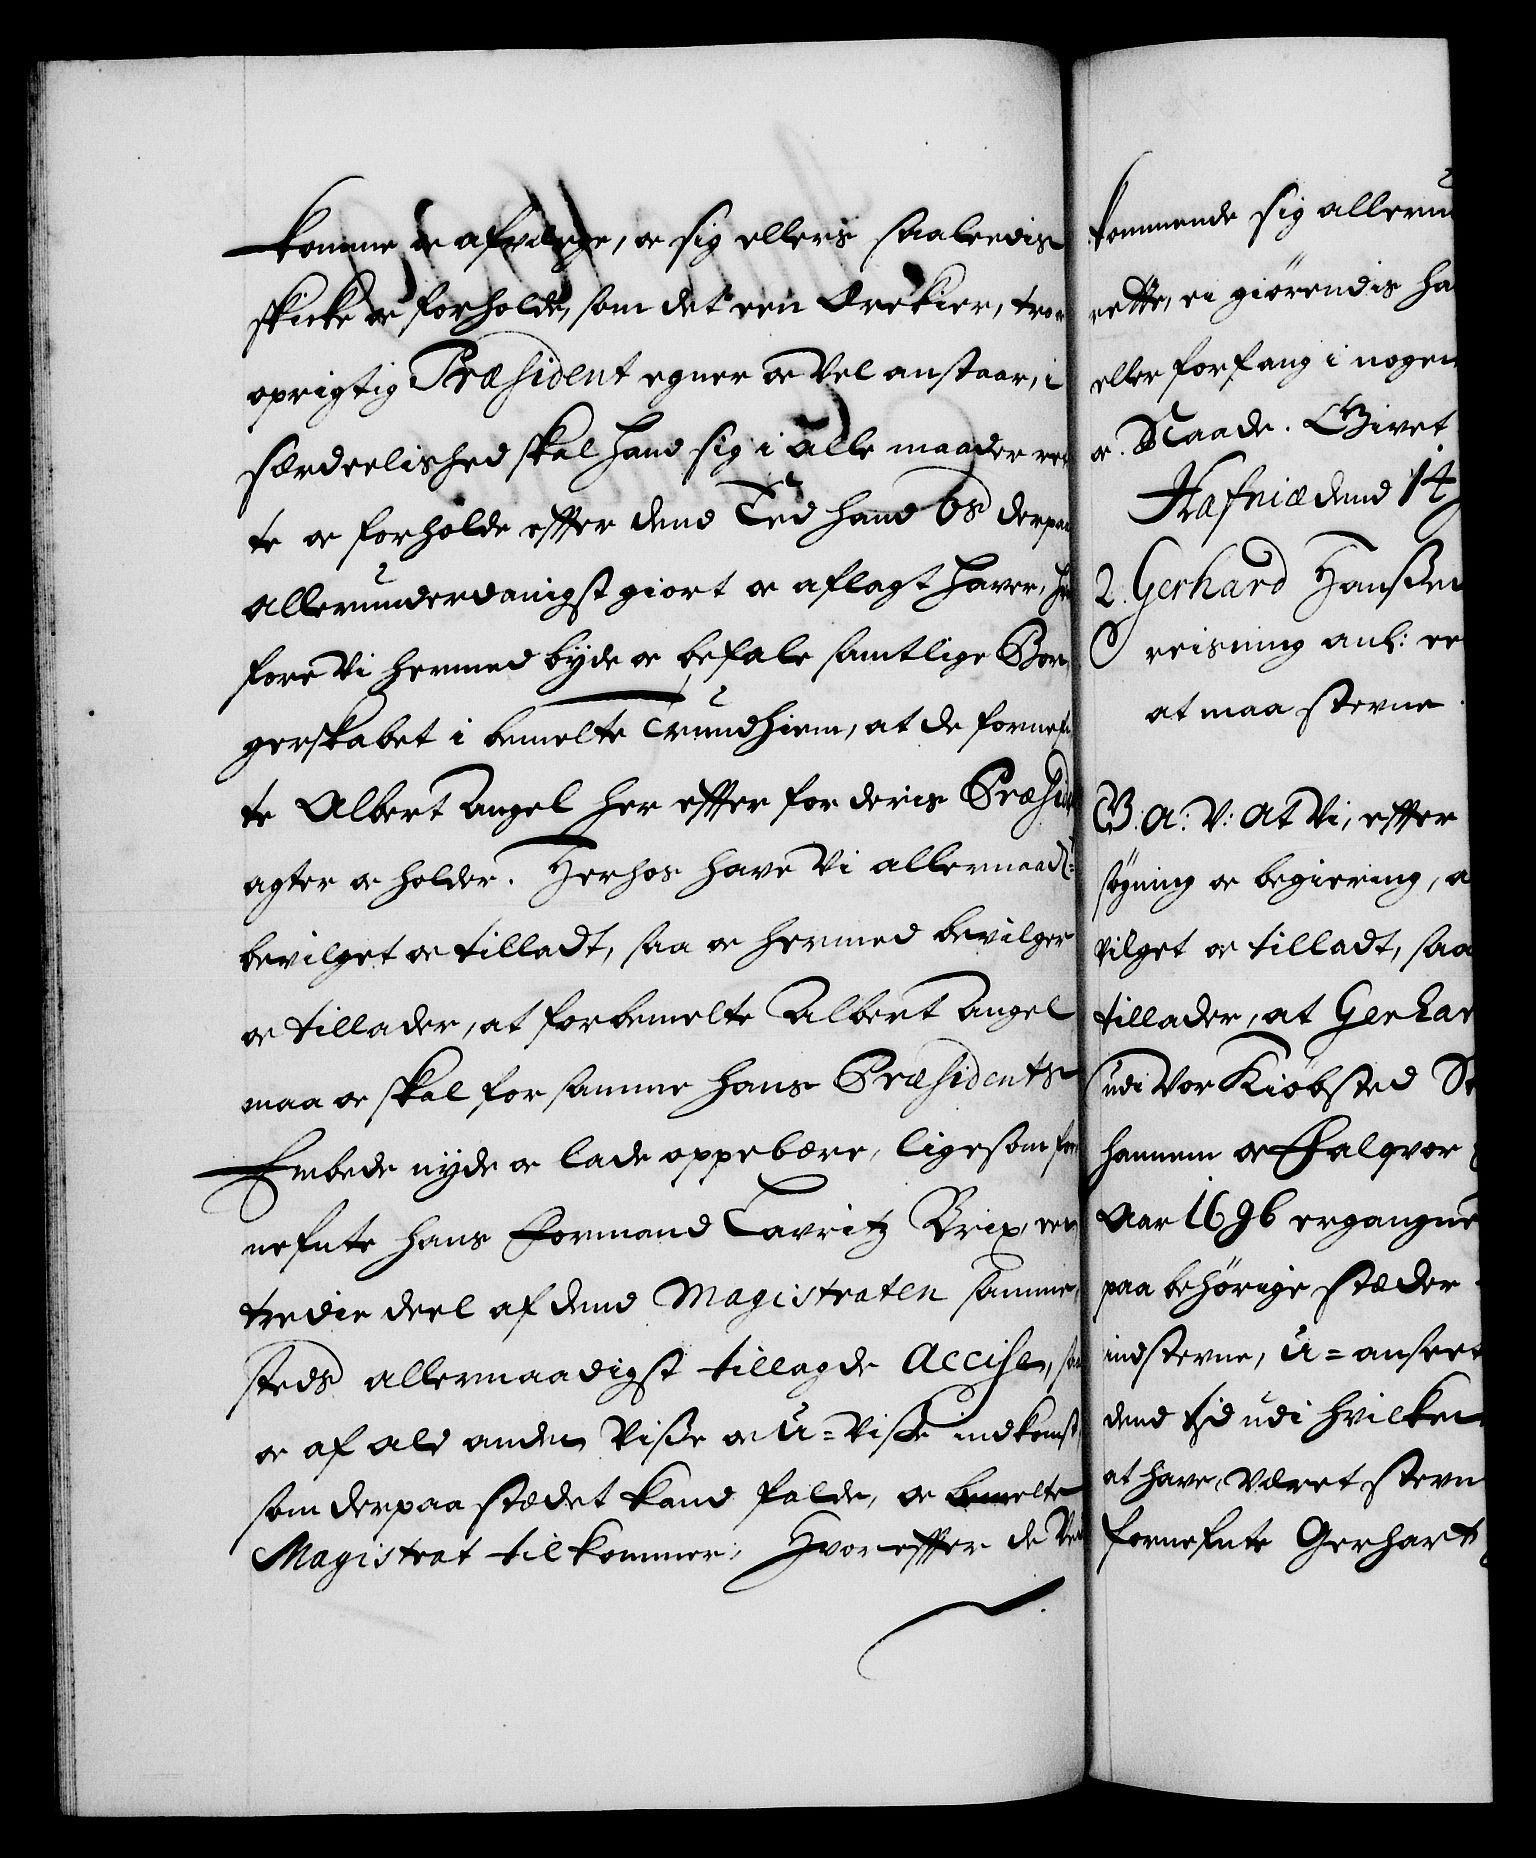 komme oc afværge, oc sig ellers saaledis
skicke oc forholde, som det een Ærekier, troe
oprigtig Præsident egner oc vel anstaar, i
særdeelished skal hand sig i alle maader ret
te oc forholde effter dend Eed hand Os derpaa
allerunderdanigst giort oc aflagt haver, her
fore Vi hermed byde oc befale samtlige Bor
gerskabet i bemelte Trundhiem, at de fornefn
te Albert Angel her effter for deris Præsid
agter oc holder. Herhos have Vi allernaad:
bevilget oc tilladt, saa oc hermed bevilger
oc tillader, at forbemelte Albert Angel
maa oc skal for samme hans Præsidents
Embede nyde oc lade oppebære, ligesom for
nefnte hans Formand Lavritz Brix, een
tredie deel af dend Magistraten samme
steds allernaadigst tillagde Accise, saa
oc af ald anden Visse oc U=visse indkomst,
som derpaa stædet kand falde, oc bemelte
Magistrat tilkommer, Hvoreffter de Ved
kommende sig alleru
rette, ei giörendis ha
eller forfang i nogen
oc Naade. Givet
Hafniæ dend 14
2. Gerhard Hanssen
reisning anl: ee
at maa stevne.
G. A: V: At Vi, effter
søgning oc begiering, a
vilget oc tilladt, saa
tillader, at Gerhar
udi Vor Kiöbsted St
hannem oc Falqvor
Aar 1696 ergangne
paa behörige stæder
indstevne, U=anseet
dend tid udi hvilken
at have været stevn
fornefnte Gerhart